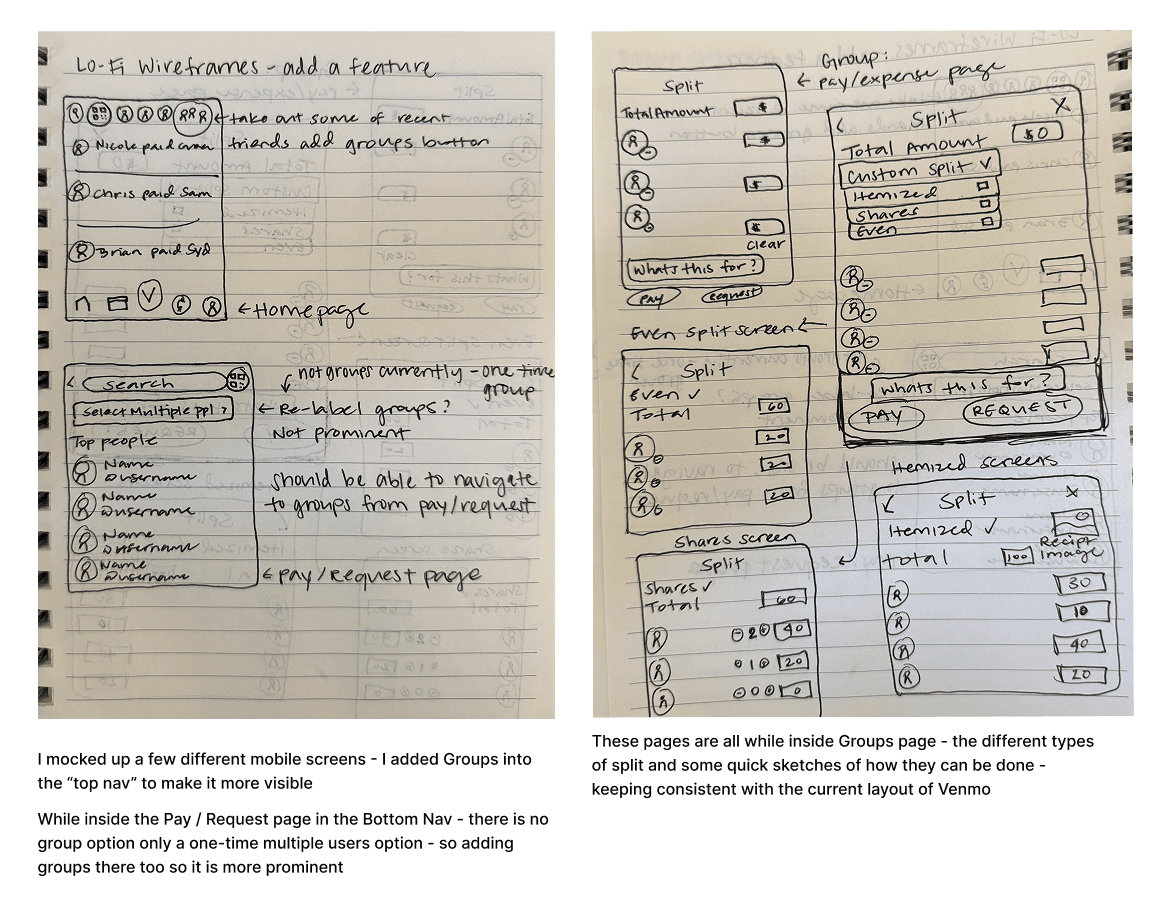 Lo-Fi Wireframes - add a feature
take out some of recent
friends add groups button
Nicole paid
Chris paid Sam
Brian paid Syd
Home page
search
Select Multiple ppl ?
Top people
Name
@username
Name
@username
Name
@username
Name
@username
not groups currently - one time
group
Re-label groups?
Not prominent
should be able to navigate
to groups from pay/request
pay/request page
Group:
pay/expense page
Split
Total Amount $
$
$
$
clear
Whats this for?
pay request
Split X
Total Amount $0
Custom Split
Itemized
Shares
Even
Whats this for?
PAY REQUEST
Even Split screen
Split
Even ✓
Total 60
20
20
20
Shares screen
Split
Shares ✓
Total 60
2 40
1 20
0 0
Itemized screens
Split X
Itemized ✓
Total 100
Image
30
10
40
20
I mocked up a few different mobile screens - I added Groups into
the “top nav” to make it more visible
While inside the Pay / Request page in the Bottom Nav - there is no
group option only a one-time multiple users option - so adding
groups there too so it is more prominent
These pages are all while inside Groups page - the different types
of split and some quick sketches of how they can be done -
keeping consistent with the current layout of Venmo